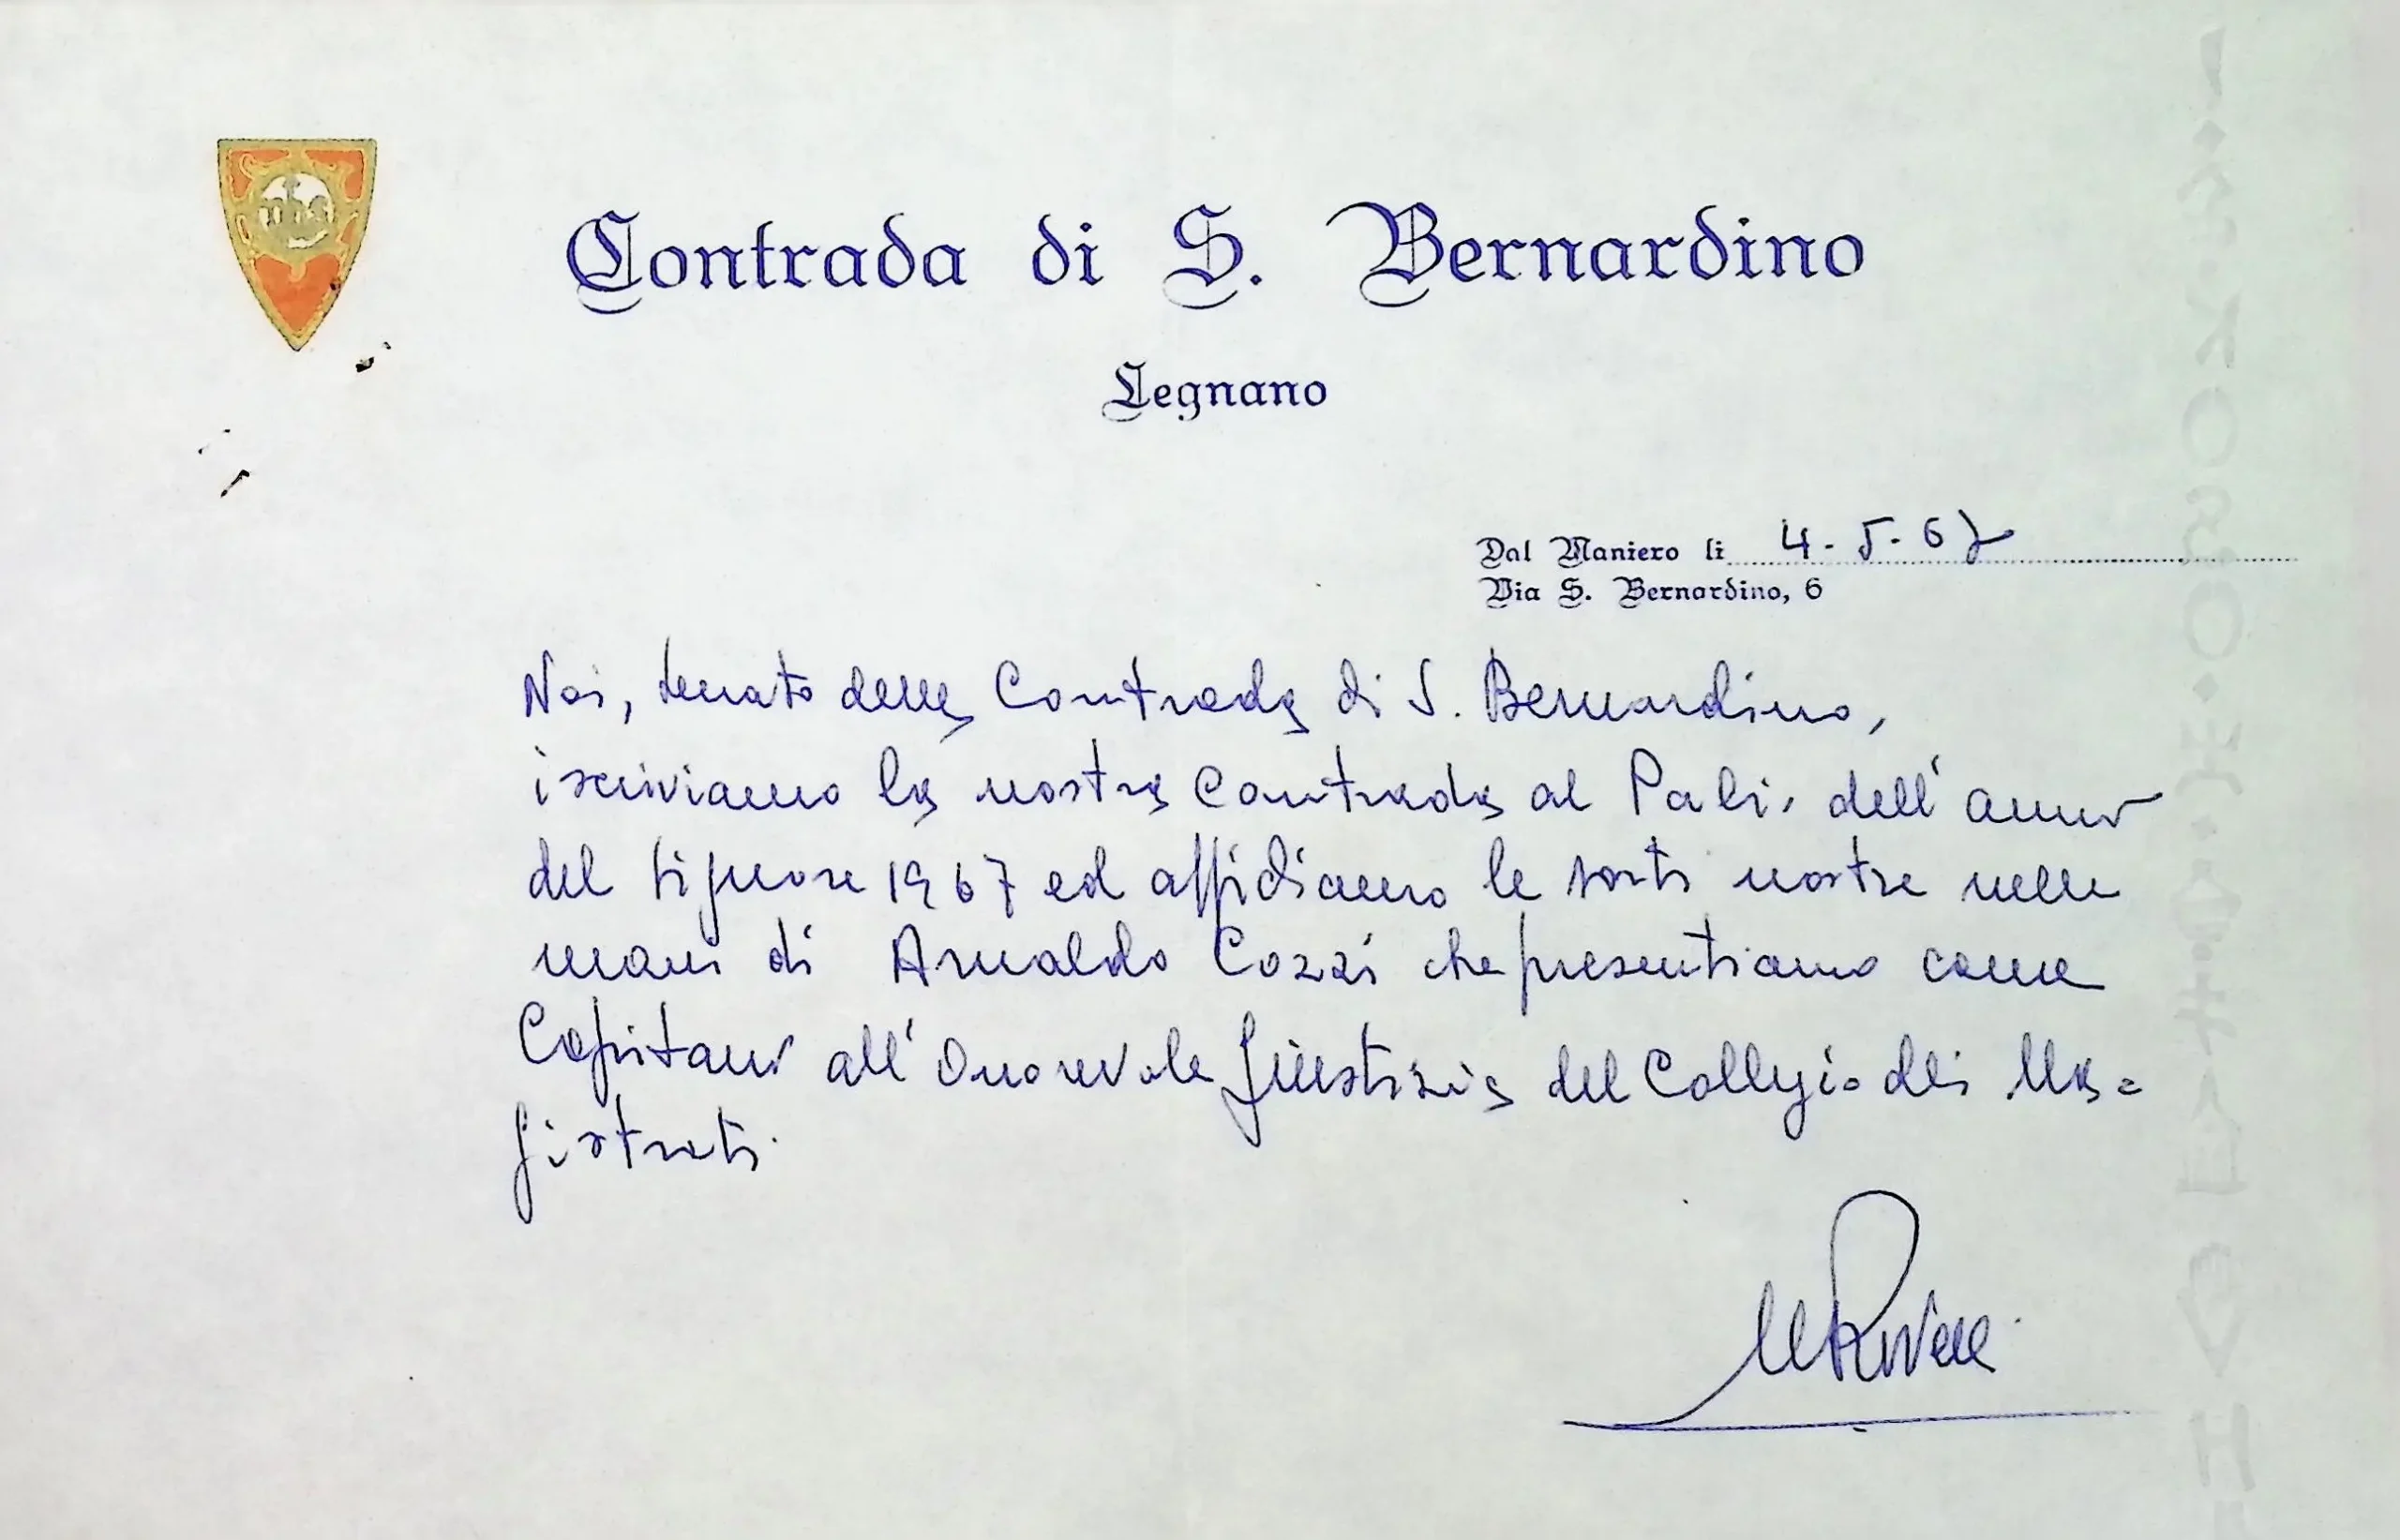 Contrada di S. Bernardino
Legnano
Dal Maniero li 4-5-67
Via S. Bernardino, 6
Noi, senato della Contrada di S. Bernardino,
iscriviamo la nostra Contrada al Palio dell'anno
del Signore 1967 ed affidiamo le sorti nostre nelle
mani di Arnaldo Cozzi che presentiamo come
Capitano all'Onorevole Giustizia del Collegio dei Ma=
gistrati.